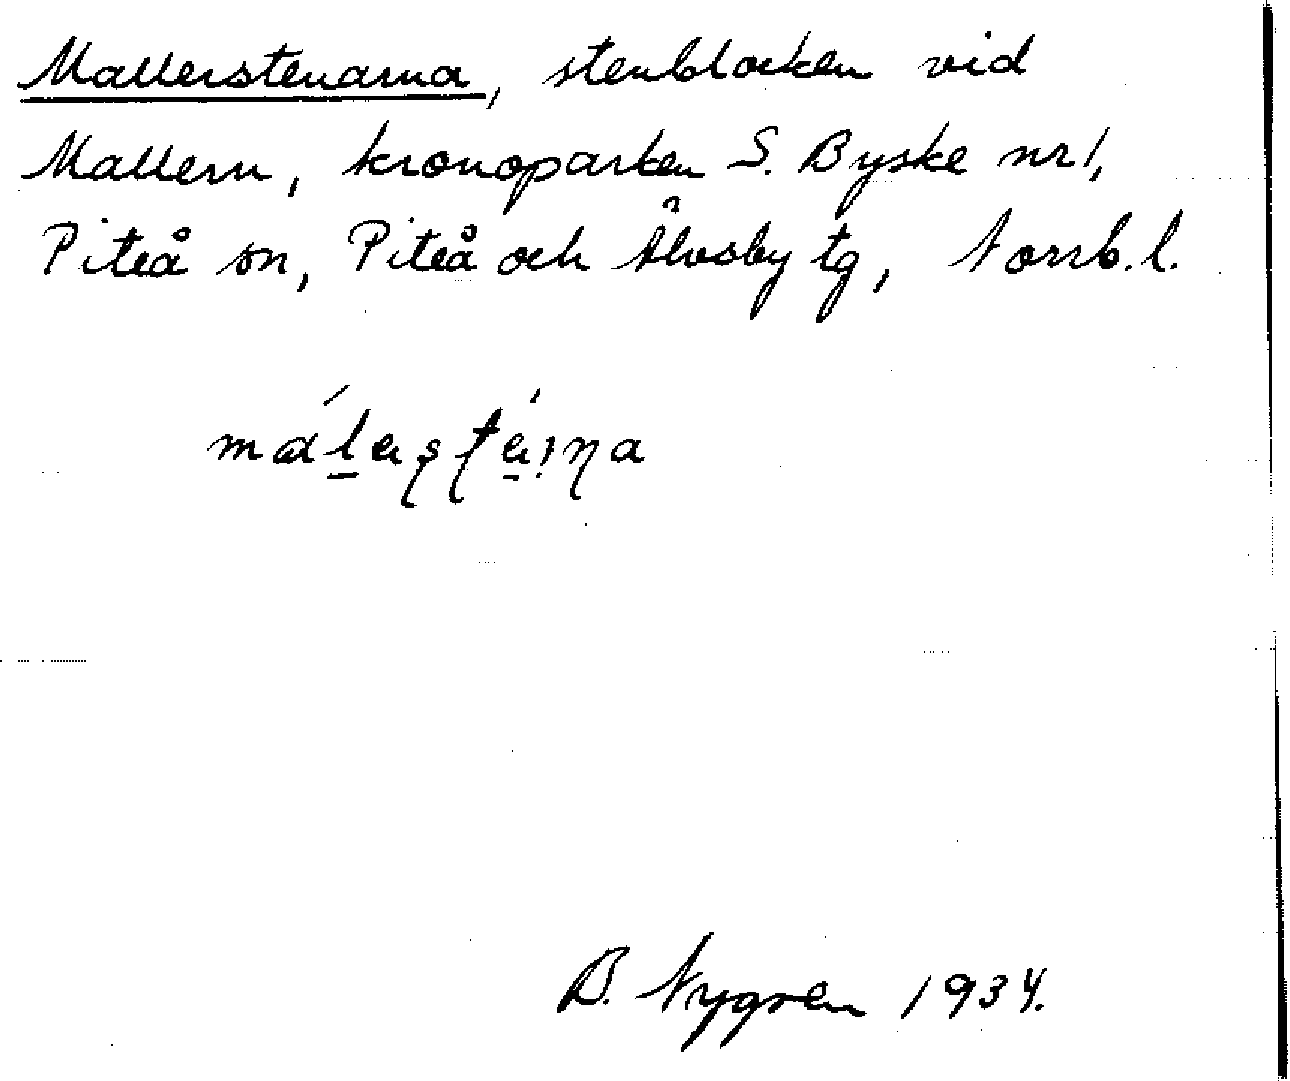 Mallerstenarna, stenblocken vid
Mallern, kronoparken S. Byske nr 1,
Piteå sn, Piteå och Älvsby tg, Norrb. l.
B. Nygren 1934.